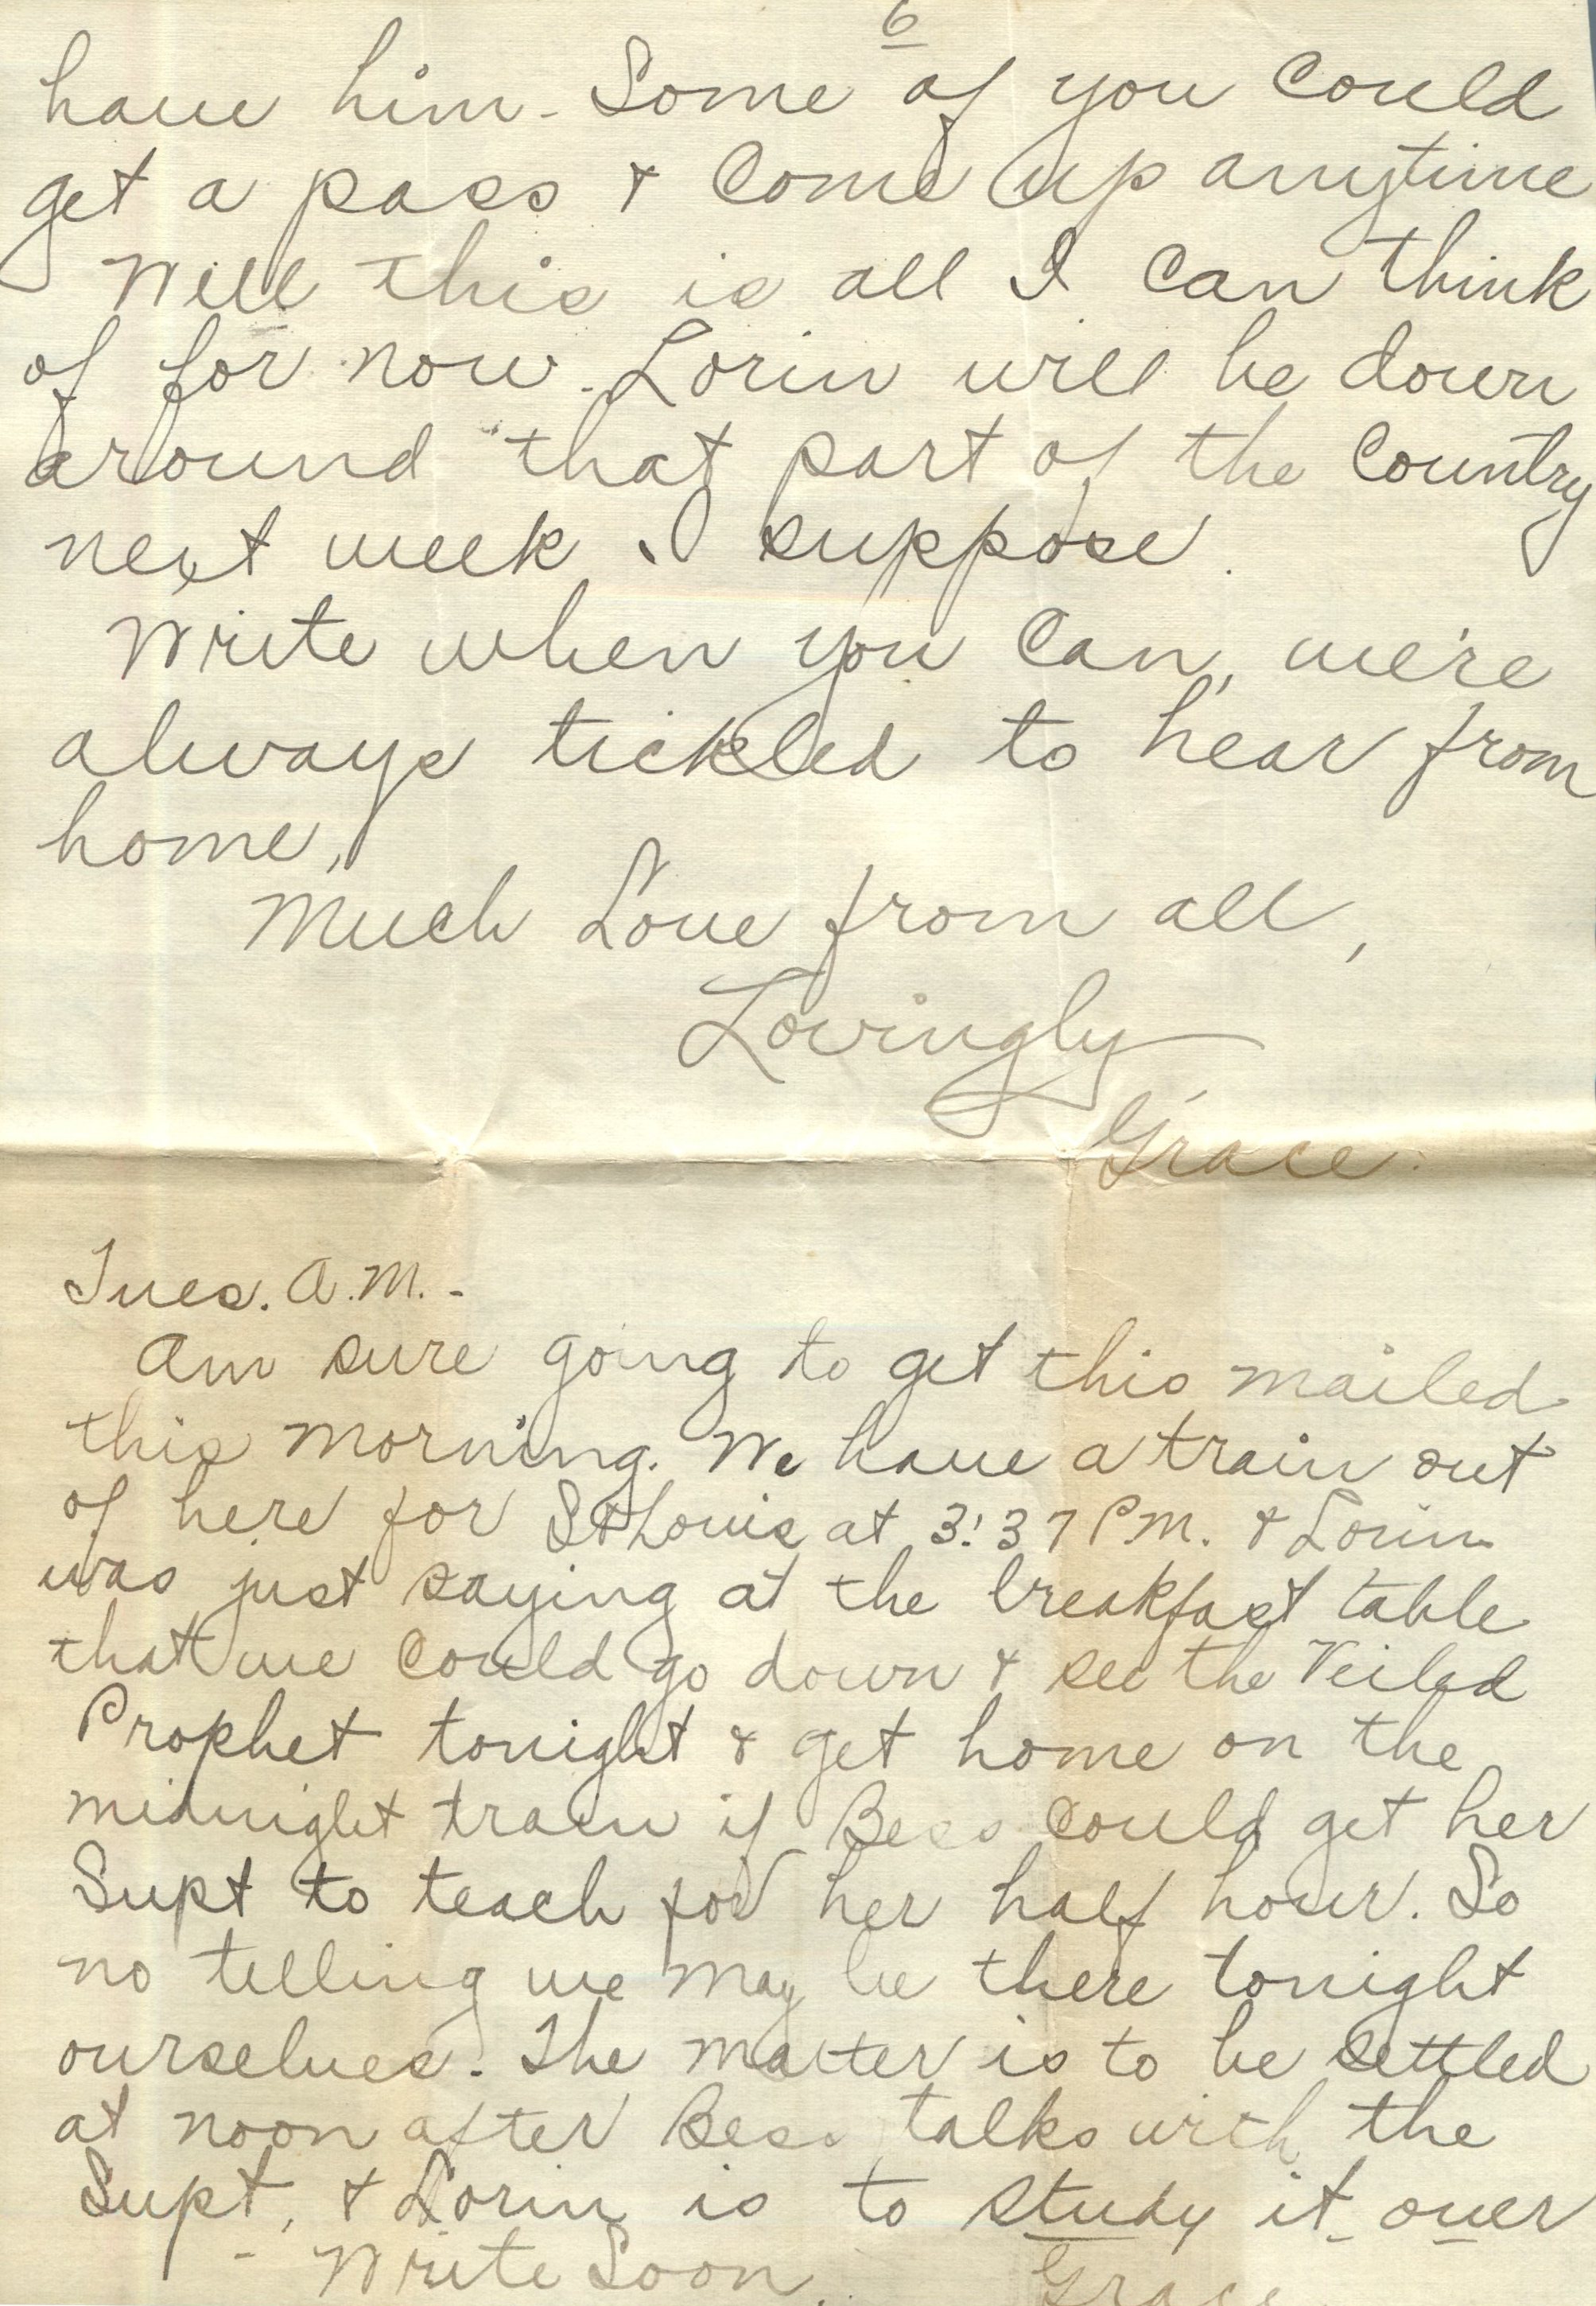 6
have him - Some of you could
get a pass & Come up anytime
Well this is all I can think
of for now - Lorin will be down
around that part of the Country
next week I suppose.
Write when you can, we're
always tickled to hear from
home,
Much Love from all,
Lovingly
Grace.
Tues. A.M. -
Am sure going to get this mailed
this morning. We have a train out
of here for St Louis at 3:37 P.M. & Lorin
was just saying at the breakfast table
that we could go down & see the Veiled
Prophet tonight & get home on the
midnight train if Bess could get her
Supt to teach for her half hour. So
no telling we may be there tonight
ourselves. The matter is to be settled
at noon after Bess talks with the
Supt, & Lorin is to study it over
- Write Soon. Grace